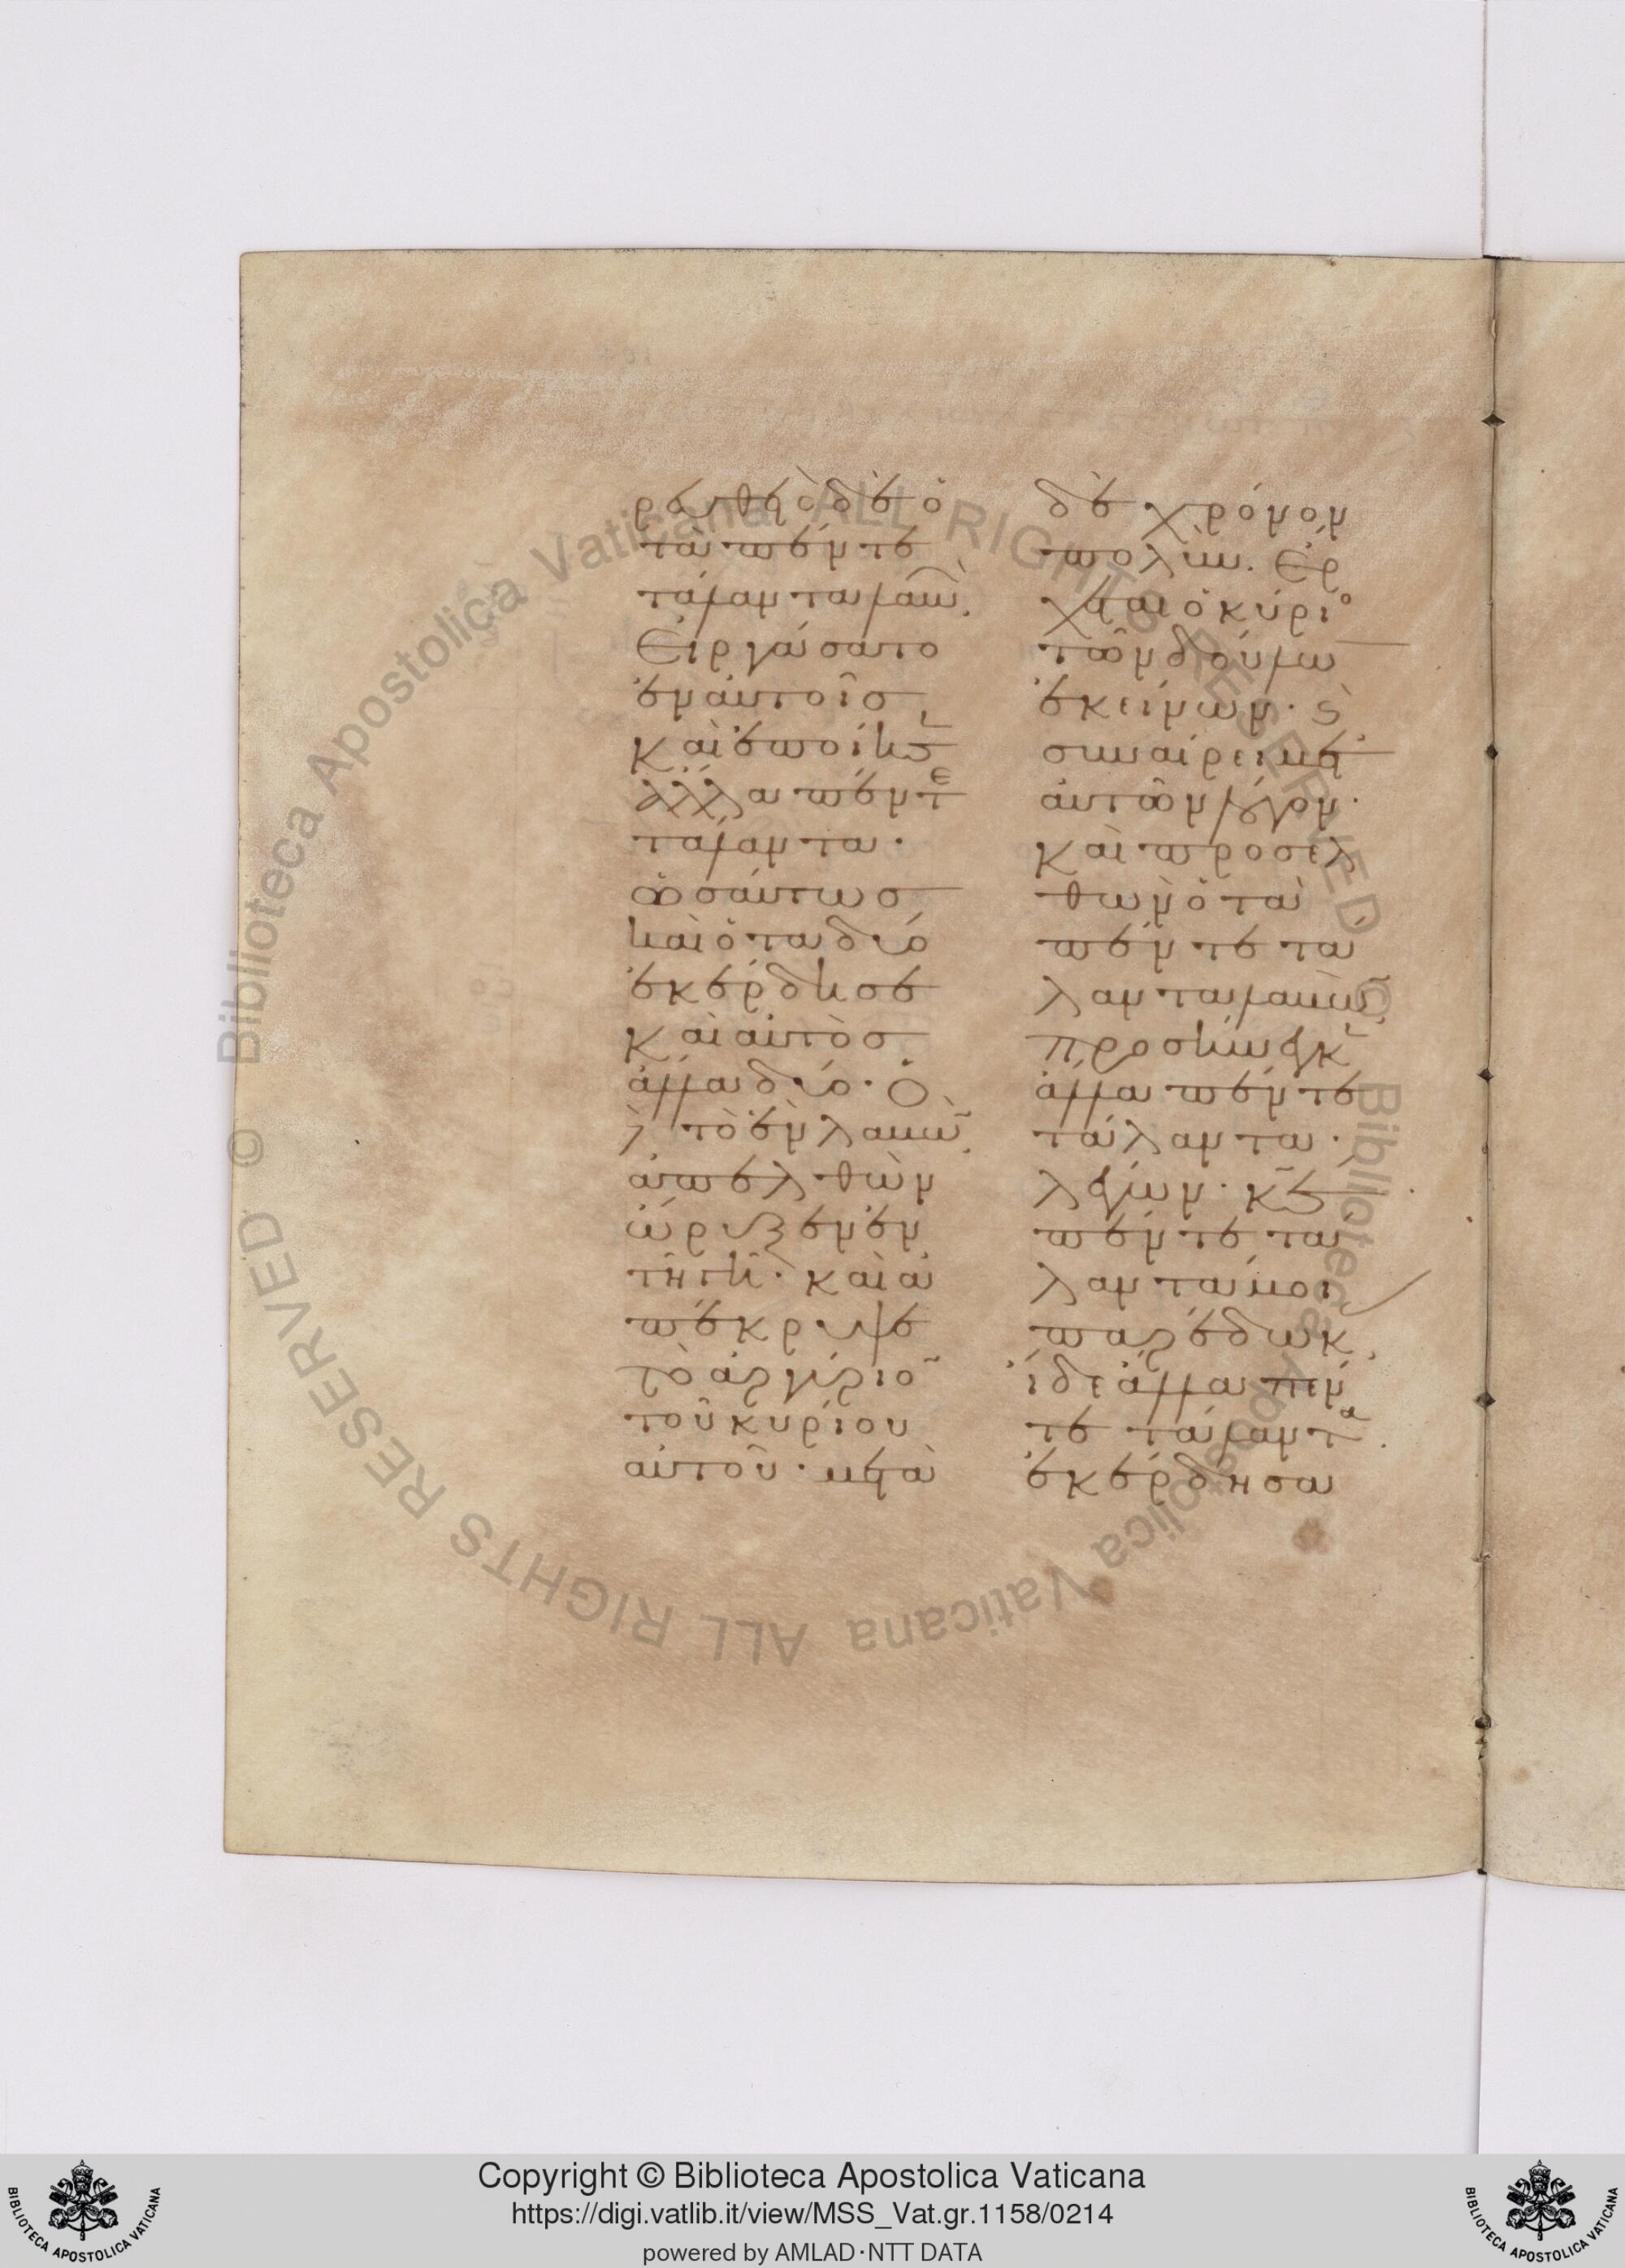 ρευθεὶς δὲ ὁ
τὰ πέντε
τάλαντα λαβὼν
Εἰργάσατο
ἐν αὐτοῖς
καὶ ἐποίησεν
ἄλλα πέντε
τάλαντα·
ὡσαύτως
καὶ ὁ τὰ δύο
ἐκέρδησε
καὶ αὐτὸς
ἄλλα δύο· Ὁ
δὲ τὸ ἓν λαβὼν
ἀπελθὼν
ὤρυξεν ἐν
τῇ γῇ· καὶ ἀ
πέκρυψε
τὸ ἀργύριον
τοῦ κυρίου
αὐτοῦ· μετὰ
δὲ χρόνον
πολὺν· Ἔρ
χεται ὁ κύριο
τῶν δούλων
ἐκείνων· καὶ
συναίρει μετ'
αὐτῶν λόγον·
καὶ προσελ
θὼν ὁ τὰ
πέντε τά
λαντα λαβὼν
προσήνεγκεν
ἄλλα πέντε
τάλαντα·
λέγων· κε
πέντε τά
λαντά μοι
παρέδωκ
ἴδε ἄλλα πέν
τε τάλαντα
ἐκέρδησα
Copyright © Biblioteca Apostolica Vaticana
https://digi.vatlib.it/view/MSS_Vat.gr.1158/0214
powered by AMLAD·NTT DATA
BIBLIOTECA APOSTOLICA VATICANA
BIBLIOTECA APOSTOLICA VATICANA
© Biblioteca Apostolica Vaticana ALL RIGHTS RESERVED
© Biblioteca Apostolica Vaticana ALL RIGHTS RESERVED